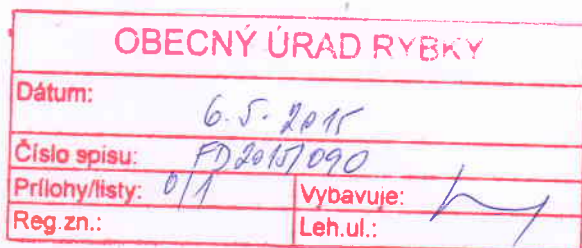 OBECNÝ ÚRAD RYBKY
Dátum:
6.5.2015
Číslo spisu: FD2015/090
Prílohy/listy: 0/1 Vybavuje:
Reg.zn.: Leh.ul.: